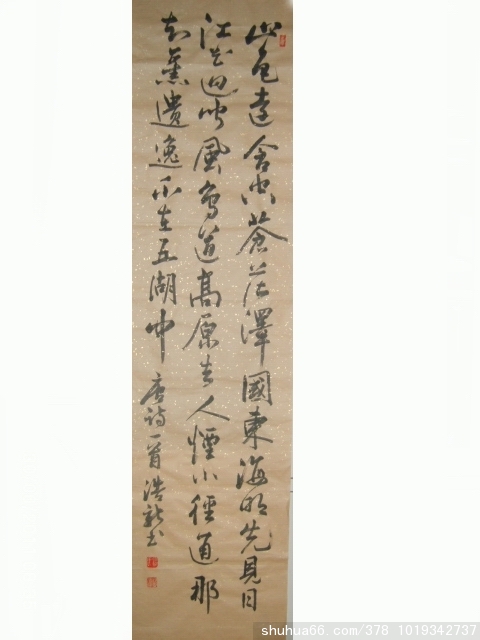 山色遠含空蒼茫澤國東海明先見日
江白迥聞風鳥道高原去人煙小徑通那
知舊遺逸不在五湖中
唐詩一首浩龍書
shuhua66.com/378 1019342737